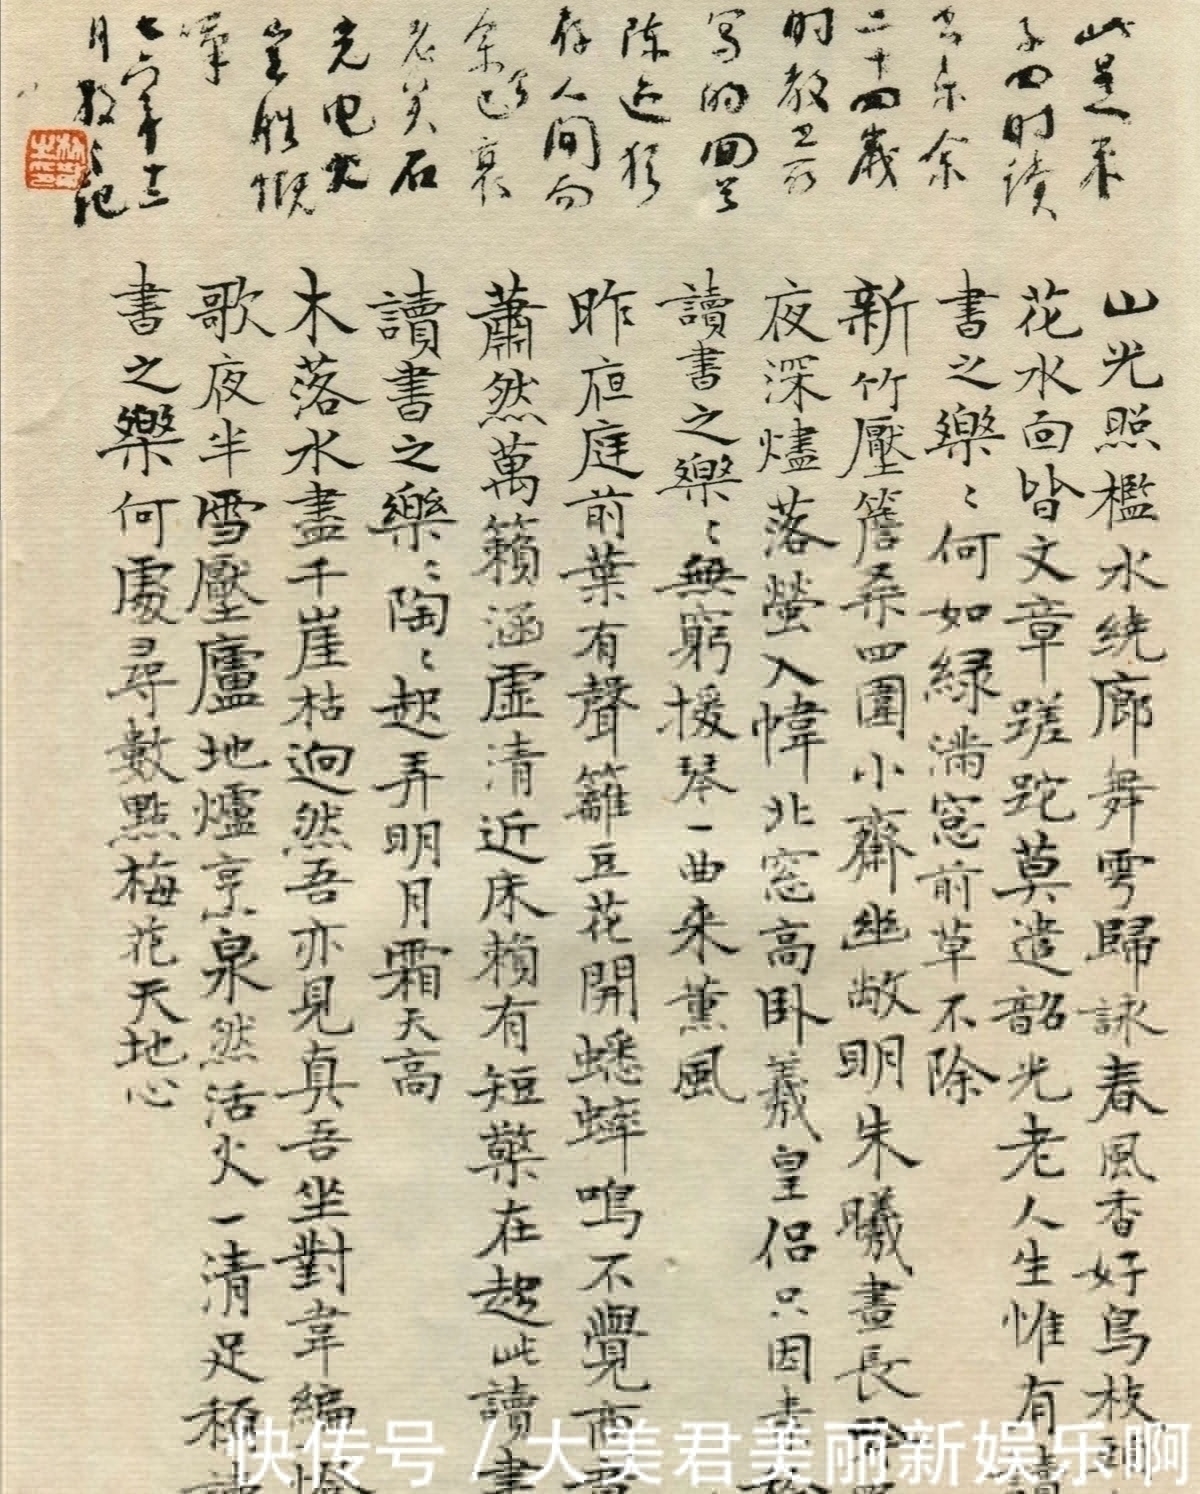 此是朱
子四时读
书乐余
二十四岁
时教
写的回
陈迹犹
存人间而
余已衰
老矣石
光电火
岂胜慨
嘆
七六年十二
月
山光照檻水繞廊舞雩歸詠春風香好鳥枝
花水面皆文章蹉跎莫遣韶光老人生惟有讀
書之樂〻何如綠滿窗前草不除
新竹壓簷桑四圍小齋幽敞明朱曦晝長
夜深燼落螢入幃北窗高卧羲皇侶只因素
讀書之樂〻無窮援琴一曲來薰風
昨夜庭前葉有聲籬豆花開蟋蟀鳴不覺商
蕭然萬籟涵虛清近床賴有短檠在趁此讀書
讀書之樂〻陶〻起弄明月霜天高
木落水盡千崖枯迥然吾亦見真吾坐對韋編
歌夜半雪壓廬地爐烹泉然活火一清足稱讀
書之樂何處尋數點梅花天地心
快传号 / 大美君美丽新娱乐啊